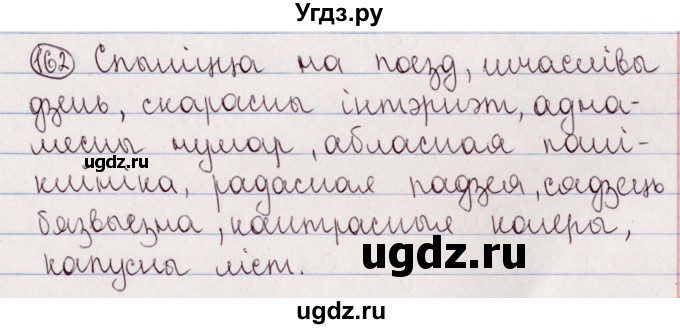 Угдз.ру
162 Спыніцца на поезд, шчаслівы
дзень, скарасны інтэрнэт, адна-
месны нумар, абласная палі-
ugdz.ru
клініка, радасная падзея, сядзець
бязвыезна, кантрасныя колеры,
капусны ліст.
ugdz.ru
ugdz.ru